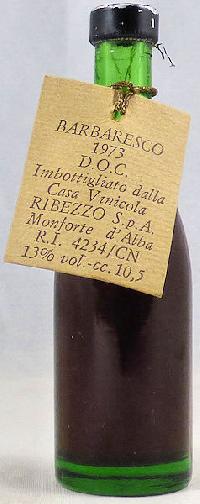 BARBARESCO
1973
D.O.C.
Imbottigliato dalla
Casa Vinicola
RIBEZZO S.p.A.
Monforte d'Alba
R.I. 4234/CN
13% vol -cc. 10,5